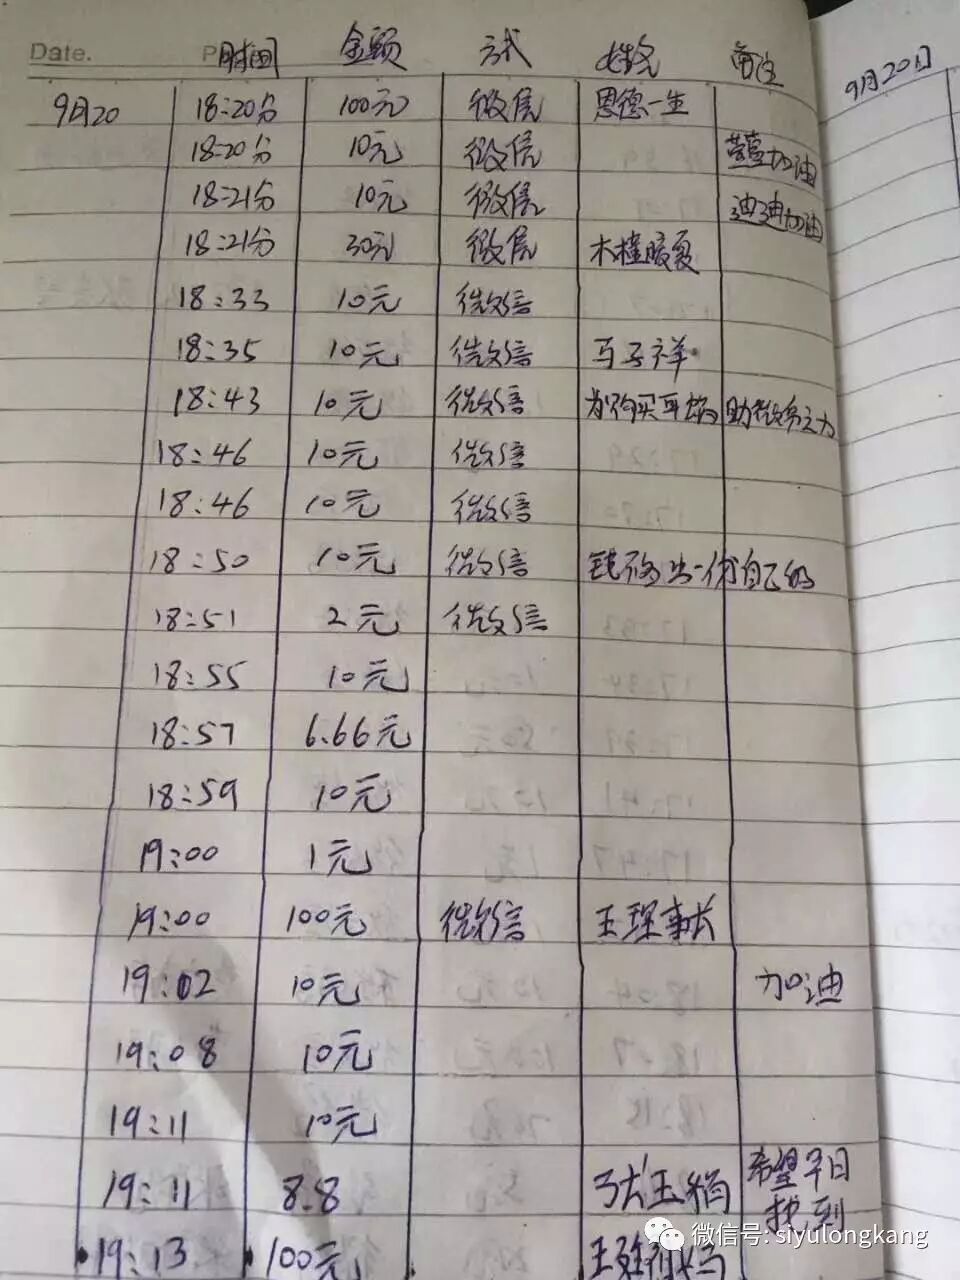 Date.
时间 金额 方式 姓名 备注
9月20日
9月20 18:20分 100元 微信 恩德一生
18:20分 10元 微信 加油
18:21分 10元 微信 迪迪加油
18:21分 30元 微信 木槿暖夏
18:33 10元 微信
18:35 10元 微信 马子祥
18:43 10元 微信 为购买耳蜗 助微薄之力
18:46 10元 微信
18:46 10元 微信
18:50 10元 微信 自己的
18:51 2元 微信
18:55 10元
18:57 6.66元
18:59 10元
19:00 1元
19:00 100元 微信 王理事长
19:02 10元 加油
19:08 10元
19:11 10元
19:11 8.8 张玉梅 希望早日
找到
19:13 100元 妈妈
微信号: siyulongkang